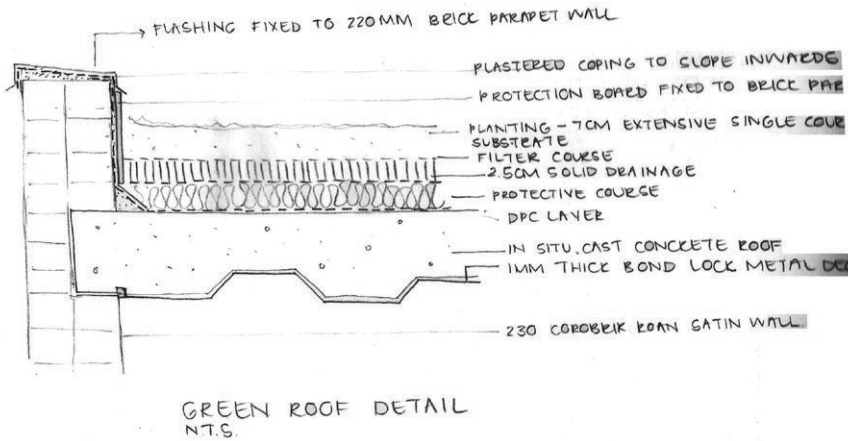 FLASHING FIXED TO 220MM BRICK PARAPET WALL
PLASTERED COPING TO SLOPE INWARDS
PROTECTION BOARD FIXED TO BRICK PAR
PLANTING - 7CM EXTENSIVE SINGLE COUR
SUBSTRATE
FILTER COURSE
2.5CM SOLID DRAINAGE
PROTECTIVE COURSE
DPC LAYER
IN SITU CAST CONCRETE ROOF
1MM THICK BOND LOCK METAL DEC
230 COROBRIK ROAN SATIN WALL.
GREEN ROOF DETAIL
N.T.S.